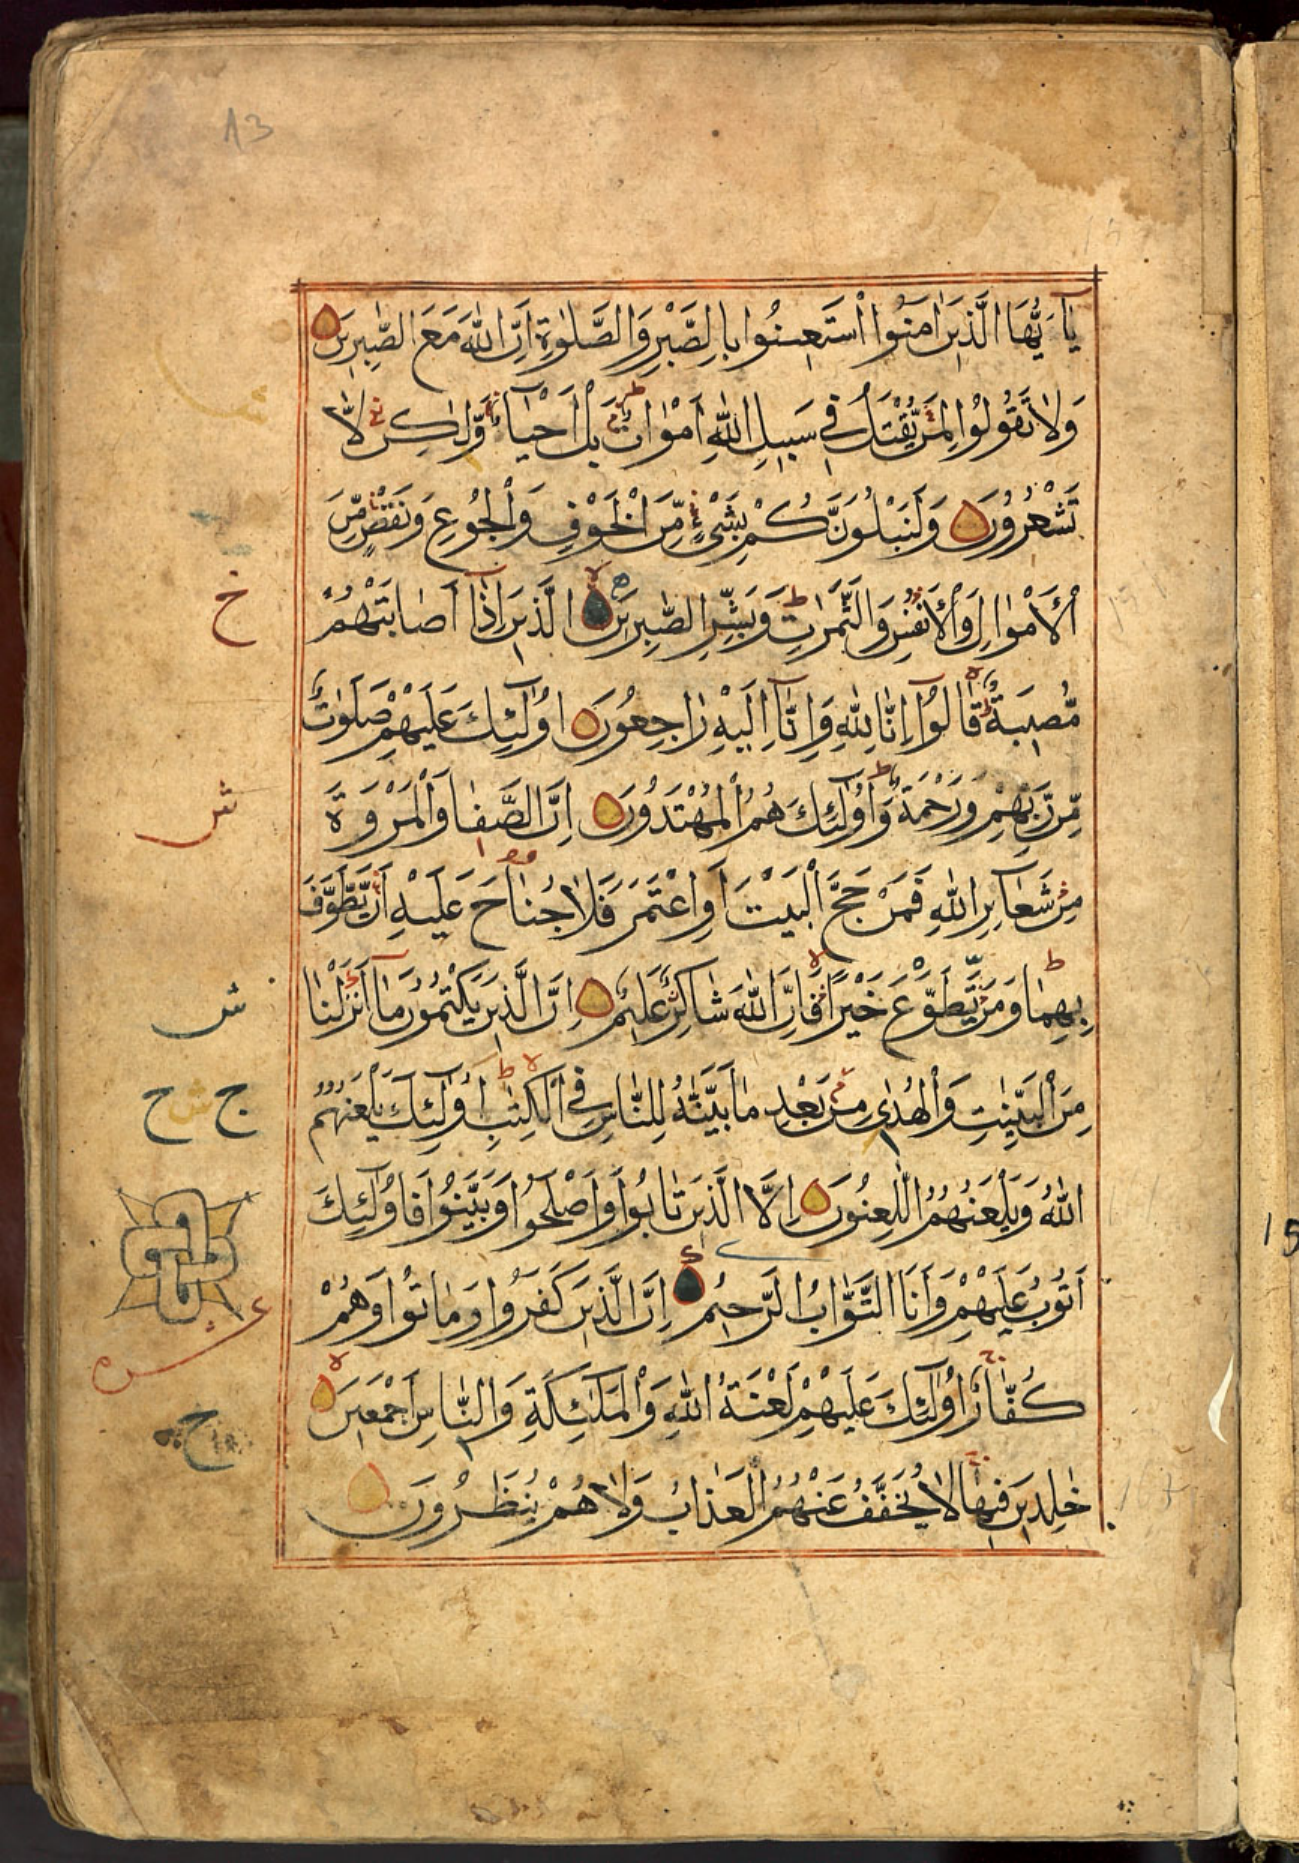 يَا أَيُّهَا الَّذِينَ اٰمَنُوا اسْتَعِينُوا بِالصَّبْرِ وَالصَّلٰوةِ اِنَّ اللّٰهَ مَعَ الصّٰبِرِينَ
وَلَا تَقُولُوا لِمَنْ يُقْتَلُ فِي سَبِيلِ اللّٰهِ اَمْوَاتٌ بَلْ اَحْيَاءٌ وَّلٰكِنْ لَّا
تَشْعُرُونَ وَلَنَبْلُوَنَّكُمْ بِشَيْءٍ مِّنَ الْخَوْفِ وَالْجُوعِ وَنَقْصٍ مِّنَ
الْاَمْوَالِ وَالْاَنْفُسِ وَالثَّمَرٰتِ وَبَشِّرِ الصّٰبِرِينَ الَّذِينَ اِذَا اَصَابَتْهُمْ
مُّصِيبَةٌ قَالُوا اِنَّا لِلّٰهِ وَاِنَّا اِلَيْهِ رَاجِعُونَ اُولٰئِكَ عَلَيْهِمْ صَلَوٰتٌ
مِّنْ رَّبِّهِمْ وَرَحْمَةٌ وَاُولٰئِكَ هُمُ الْمُهْتَدُونَ اِنَّ الصَّفَا وَالْمَرْوَةَ
مِنْ شَعَآيِرِ اللّٰهِ فَمَنْ حَجَّ الْبَيْتَ اَوِ اعْتَمَرَ فَلَا جُنَاحَ عَلَيْهِ اَنْ يَّطَّوَّفَ
بِهِمَا وَمَنْ تَطَوَّعَ خَيْرًا فَاِنَّ اللّٰهَ شَاكِرٌ عَلِيمٌ اِنَّ الَّذِينَ يَكْتُمُونَ مَا اَنْزَلْنَا
مِنَ الْبَيِّنٰتِ وَالْهُدٰى مِنْ بَعْدِ مَا بَيَّنّٰهُ لِلنَّاسِ فِي الْكِتٰبِ اُولٰئِكَ يَلْعَنُهُمُ
اللّٰهُ وَيَلْعَنُهُمُ اللّٰعِنُونَ اِلَّا الَّذِينَ تَابُوا وَاَصْلَحُوا وَبَيَّنُوا فَاُولٰئِكَ
اَتُوبُ عَلَيْهِمْ وَاَنَا التَّوَّابُ الرَّحِيمُ اِنَّ الَّذِينَ كَفَرُوا وَمَاتُوا وَهُمْ
كُفَّارٌ اُولٰئِكَ عَلَيْهِمْ لَعْنَةُ اللّٰهِ وَالْمَلٰئِكَةِ وَالنَّاسِ اَجْمَعِينَ
خٰلِدِينَ فِيهَا لَا يُخَفَّفُ عَنْهُمُ الْعَذَابُ وَلَا هُمْ يُنْظَرُونَ